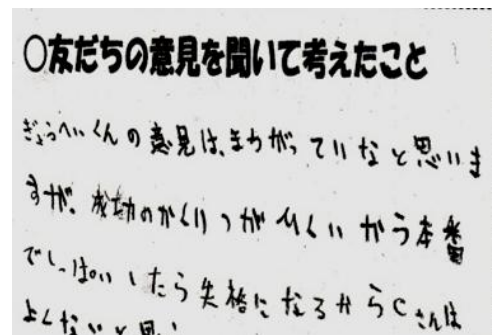 ○友だちの意見を聞いて考えたこと
ぎょうへいくんの意見は、まちがっていなと思いま
すが、成功のかくりつがひくいがら本番
でしっぱいしたら失格になるからCさんは
よくないと思い